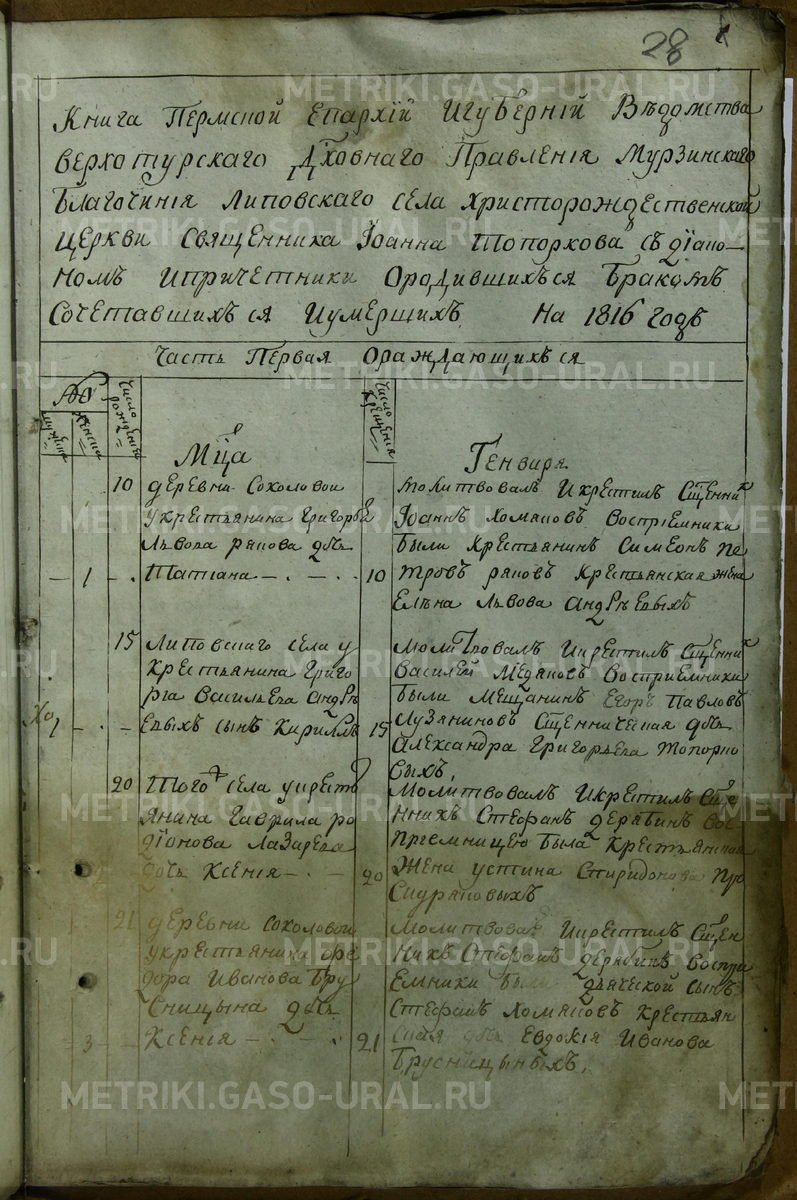 28
Книга Пермской Епархіи Игуберніи Вѣдомства
верхотурскаго Дховнаго Правленія Мурзинскаго
Благочинія Липовскаго села христорождественской
церкви Священника Іоанна Топоркова съ діако-
номъ ипричетники Ородившихъся Бракомъ
Сочетавшихъся Иумершихъ На 1816 годъ
Часть Первая Ораждающихъся
число рожденія
женска
число крещенія
Мца Генваря
10 деревни Соколовой
укрестьянина Григорья
Львова ряпова дчь
1 Татіана
молитвовалъ Икрестилъ Сщенник
Іоаннъ хомяковъ Воспріемники
были Крестьянинъ Симеонъ пе
10 тровъ ряповъ Крестьянская жена
Елѣна Львова андрѣевыхъ
15 липовскаго села у
крестьянина Григо
рья Васильева андрѣ
1 евыхъ сынъ Кириллъ
молитвовалъ Икрестилъ Сщенник
Василей Медяковъ Восприемники
были Мещанинъ Егоръ Павловъ
15 лузяниновъ Сщенническая дчь
александра Григорьева топорко
выхъ,
20 Того села укресть
янина Гаврила ро
діонова лазарева
дчь Ксенія
молитвовалъ Икрестилъ Сще
нникъ Стефанъ дерябинъ Вос
пріемницею была Крестьянская
20 жена устина Спиридонова про
скуряковыхъ
21 деревни соколовой
укрестьянина фе
дора Иванова Бру
сницына дчь
3 Ксенія
молитвовалъ Икрестилъ Сщен
никъ Стефанъ дерябинъ воспри
емники были дьяческой сынъ
Стефанъ хомяковъ крестьян
21 ская дчь Евдокія Иванова
Брусницыныхъ,
METRIKI.GASO-URAL.RU